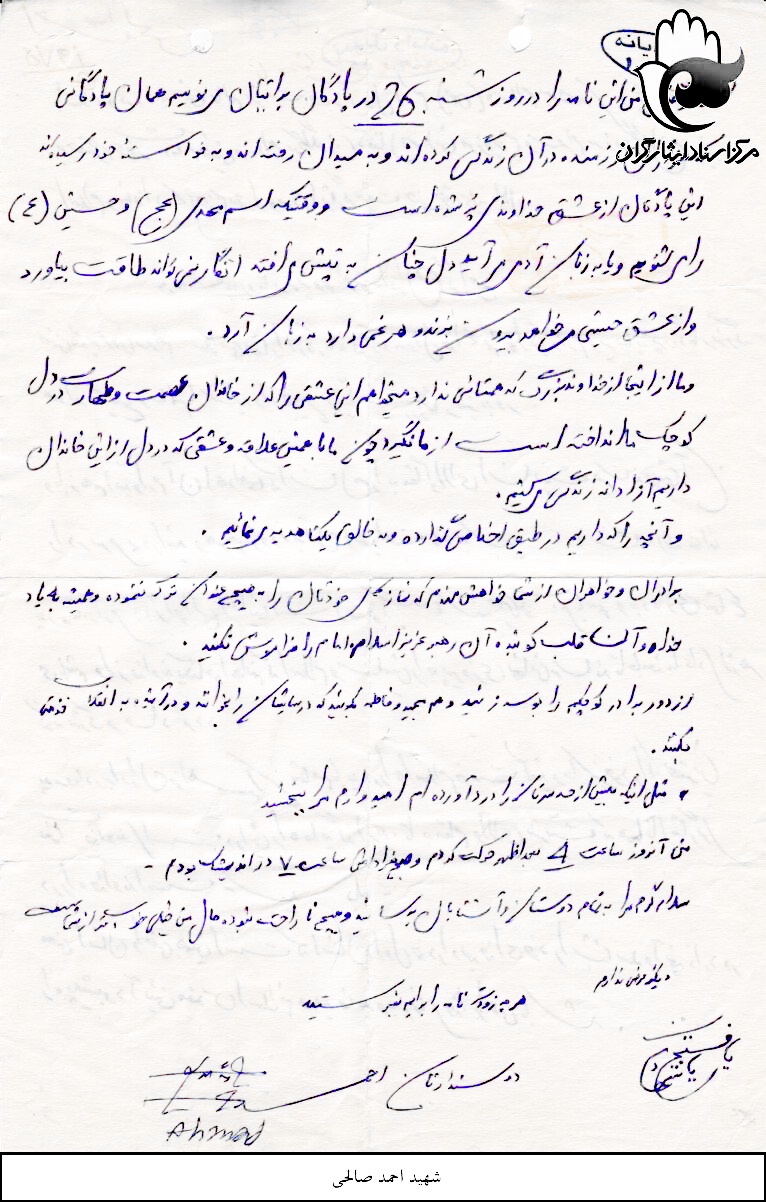 یانه
مرکز اسناد ایثارگران
من این نامه را در روز شنبه 26 در پادگان برایتان می‌نویسم همان پادگانی
رزمنده در آن زندگی کرده‌اند و به میدان رفته‌اند و به خواسته خود رسیده‌اند
این پادگان از عشق خداوندی پر شده است و وقتیکه اسم مهدی (عج) و حسین (ع)
را می‌شنویم و یا به زبان آدمی می‌آید دل چنان به تپش می‌افتد انگار نمی‌تواند طاقت بیاورد
و از عشق حسینی می‌خواهد بیرون بزند و هر غمی دارد به زبان آرد.
و ما از اینجا از خداوند بزرگ که همتائی ندارد میخواهم این عشقی را که از خاندان عصمت و طهارت در دل
کوچک ما انداخته است از ما نگیرد چون ما با همین علاقه و عشقی که در دل از این خاندان
داریم آزادانه زندگی می‌کنیم.
و آنچه را که داریم در طبق اخلاص گذارده و به خالق یکتا هدیه می‌نمائیم.
برادران و خواهران از شما خواهش مندم که نمازهای خودتان را به هیچ عنوان ترک ننموده و همیشه به یاد
خدا و آن قلب کوبنده آن رهبر عزیز اسلام امام را فراموش نکنید.
از دور برادر کوچکم را بوسه زنید و هم بمجید و فاطمه بگوئید که درسایشان را بخوانند و در آینده به انقلاب خدمتی
بکنند.
مثل اینکه بیش از حد سرتان را درد آورده‌ام امیدوارم مرا ببخشید
من آنروز ساعت 4 بعدازظهر حرکت کردم و صبح فردایش ساعت 7 در اندیمشک بودم -
سلام گرم مرا به تمام دوستان و آشنایان برسانید و هیچ ناراحت نبوده حال من خیلی خوب است
دیگر عرضی ندارم
هر چه زودتر نامه را برایم بفرستید
دوستدارتان احمد
Ahmad
شهید احمد صالحی